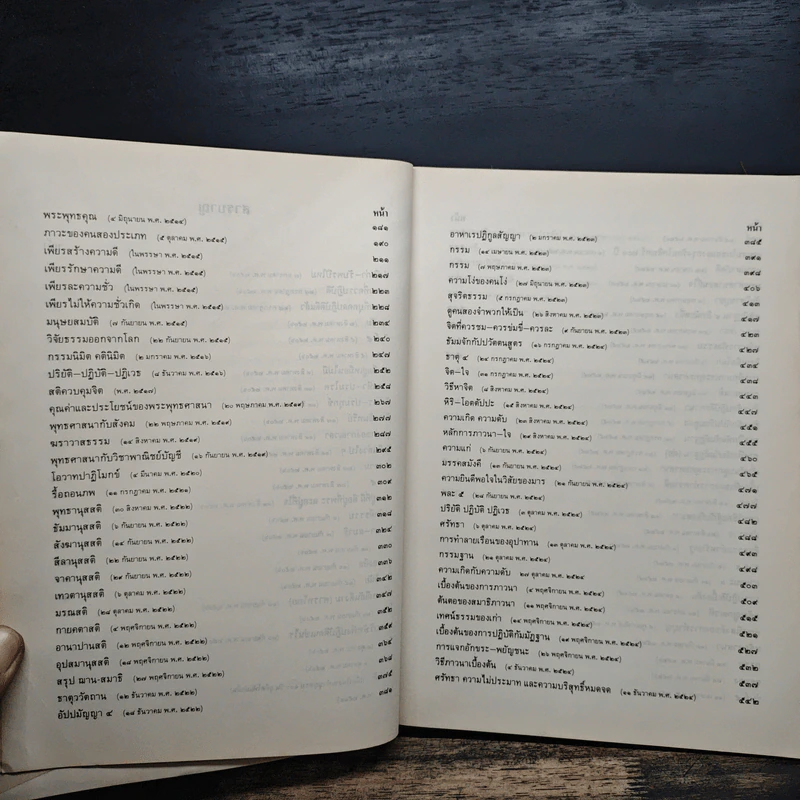 หน้า
พระพุทธคุณ (๔ มิถุนายน พ.ศ. ๒๕๑๔) ๑๘๑
ภาวะของคนสองประเภท (๕ ตุลาคม พ.ศ. ๒๕๑๕) ๑๙๐
เพียรสร้างความดี (ในพรรษา พ.ศ. ๒๕๑๕) ๒๑๑
เพียรรักษาความดี (ในพรรษา พ.ศ. ๒๕๑๕) ๒๑๗
เพียรละความชั่ว (ในพรรษา พ.ศ. ๒๕๑๕) ๒๒๓
เพียรไม่ให้ความชั่วเกิด (ในพรรษา พ.ศ. ๒๕๑๕) ๒๒๘
มนุษยสมบัติ (๗ กันยายน พ.ศ. ๒๕๑๕) ๒๓๔
วิจัยธรรมออกจากโลก (๒๒ กันยายน พ.ศ. ๒๕๑๕) ๒๔๐
กรรมนิมิต คตินิมิต (๒ มกราคม พ.ศ. ๒๕๑๖) ๒๔๗
ปริยัติ–ปฏิบัติ–ปฏิเวธ (๘ ธันวาคม พ.ศ. ๒๕๑๖) ๒๕๒
สติควบคุมจิต (พ.ศ. ๒๕๑๗) ๒๕๘
คุณค่าและประโยชน์ของพระพุทธศาสนา (๒๐ พฤษภาคม พ.ศ. ๒๕๑๙) ๒๖๗
พุทธศาสนากับสังคม (๒๒ พฤษภาคม พ.ศ. ๒๕๑๙) ๒๗๗
ฆราวาสธรรม (๑๔ สิงหาคม พ.ศ. ๒๕๑๙) ๒๘๗
พุทธศาสนากับวิชาพาณิชย์บัญชี (๑๖ กันยายน พ.ศ. ๒๕๑๙) ๒๙๕
โอวาทปาฏิโมกข์ (๔ มีนาคม พ.ศ. ๒๕๒๐) ๓๐๒
รื้อถอนภพ (๑๑ กรกฎาคม พ.ศ. ๒๕๒๑) ๓๐๙
พุทธานุสสติ (๓๐ สิงหาคม พ.ศ. ๒๕๒๒) ๓๑๒
ธัมมานุสสติ (๖ กันยายน พ.ศ. ๒๕๒๒) ๓๑๘
สังฆานุสสติ (๑๔ กันยายน พ.ศ. ๒๕๒๒) ๓๒๔
สีลานุสสติ (๒๒ กันยายน พ.ศ. ๒๕๒๒) ๓๓๐
จาคานุสสติ (๒๙ กันยายน พ.ศ. ๒๕๒๒) ๓๓๖
เทวตานุสสติ (๖ ตุลาคม พ.ศ. ๒๕๒๒) ๓๔๒
มรณสติ (๒๘ ตุลาคม พ.ศ. ๒๕๒๒) ๓๕๒
กายคตาสติ (๔ พฤศจิกายน พ.ศ. ๒๕๒๒) ๓๕๙
อานาปานสติ (๑๒ พฤศจิกายน พ.ศ. ๒๕๒๒) ๓๖๔
อุปสมานุสสติ (๑๘ พฤศจิกายน พ.ศ. ๒๕๒๒) ๓๖๘
สรุป ฌาน-สมาธิ (๒๗ พฤศจิกายน พ.ศ. ๒๕๒๒) ๓๗๕
ธาตุววัตถาน (๑๒ ธันวาคม พ.ศ. ๒๕๒๒) ๓๘๑
อัปปมัญญา ๔ (๑๘ ธันวาคม พ.ศ. ๒๕๒๒)
หน้า
อาหาเรปฏิกูลสัญญา (๒ มกราคม พ.ศ. ๒๕๒๓) ๓๘๕
กรรม (๑๔ เมษายน พ.ศ. ๒๕๒๓) ๓๙๑
กรรม (๗ พฤษภาคม พ.ศ. ๒๕๒๓) ๓๙๘
ความโง่ของคนโง่ (๒๗ มิถุนายน พ.ศ. ๒๕๒๓) ๔๐๖
สุจริตธรรม (๕ กรกฎาคม พ.ศ. ๒๕๒๓) ๔๑๓
ดูคนสองจำพวกให้เป็น (๒๖ สิงหาคม พ.ศ. ๒๕๒๓) ๔๑๗
จิตที่ควรชม–ควรข่มขี่–ควรละ (๙ กันยายน พ.ศ. ๒๕๒๓) ๔๒๓
ธัมมจักกัปปวัตตนสูตร (๑๖ กรกฎาคม พ.ศ. ๒๕๒๔) ๔๒๗
ธาตุ ๔ (๒๔ กรกฎาคม พ.ศ. ๒๕๒๔) ๔๓๔
จิต–ใจ (๓๑ กรกฎาคม พ.ศ. ๒๕๒๔) ๔๓๘
วิธีหาจิต (๘ สิงหาคม พ.ศ. ๒๕๒๔) ๔๔๓
หิริ–โอตตัปปะ (๑๕ สิงหาคม พ.ศ. ๒๕๒๔) ๔๔๗
ความเกิด ความดับ (๒๓ สิงหาคม พ.ศ. ๒๕๒๔) ๔๕๑
หลักการภาวนา–ใจ (๒๙ สิงหาคม พ.ศ. ๒๕๒๔) ๔๕๕
ความแก่ (๖ กันยายน พ.ศ. ๒๕๒๔) ๔๖๐
มรรคสมังคี (๑๓ กันยายน พ.ศ. ๒๕๒๔) ๔๖๕
ความยินดีพอใจในวิสัยของมาร (๒๑ กันยายน พ.ศ. ๒๕๒๔) ๔๗๑
พละ ๕ (๒๘ กันยายน พ.ศ. ๒๕๒๔) ๔๗๗
ปริยัติ ปฏิบัติ ปฏิเวธ (๓ ตุลาคม พ.ศ. ๒๕๒๔) ๔๘๒
ศรัทธา (๖ ตุลาคม พ.ศ. ๒๕๒๔) ๔๘๘
การทำลายเรือนของอุปาทาน (๑๓ ตุลาคม พ.ศ. ๒๕๒๔) ๔๙๓
กรรมฐาน (๒๑ ตุลาคม พ.ศ. ๒๕๒๔) ๔๙๘
ความเกิดกับความดับ ๒๗ ตุลาคม พ.ศ. ๒๕๒๔) ๕๐๓
เบื้องต้นของการภาวนา (๔ พฤศจิกายน พ.ศ. ๒๕๒๔) ๕๐๙
ต้นตอของสมาธิภาวนา (๑๑ พฤศจิกายน พ.ศ. ๒๕๒๔) ๕๑๕
เทศน์ธรรมของเก่า (๑๔ พฤศจิกายน พ.ศ. ๒๕๒๔) ๕๒๑
เบื้องต้นของการปฏิบัติกัมมัฏฐาน (๑๙ พฤศจิกายน พ.ศ. ๒๕๒๔) ๕๒๗
การแจกอักขระ–พยัญชนะ (๒๖ พฤศจิกายน พ.ศ. ๒๕๒๔) ๕๓๒
วิธีภาวนาเบื้องต้น (๔ ธันวาคม พ.ศ. ๒๕๒๔)
ศรัทธา ความไม่ประมาท และความบริสุทธิ์หมดจด (๑๑ ธันวาคม พ.ศ. ๒๕๒๔) ๕๔๒